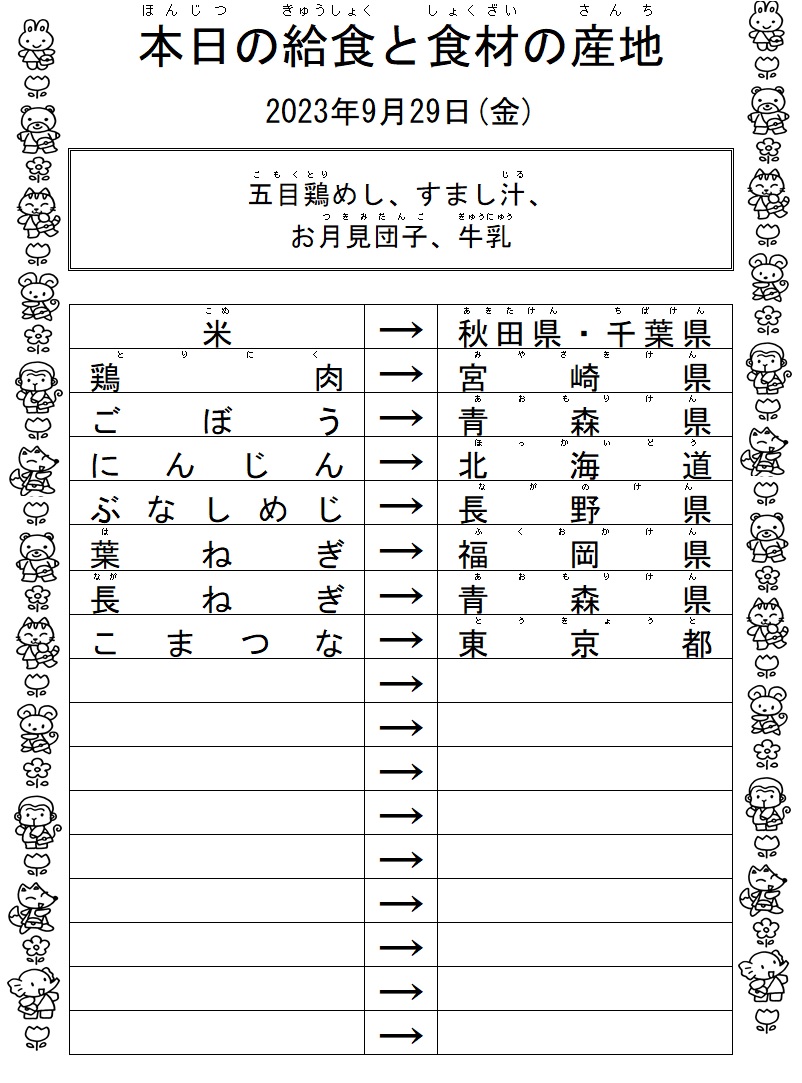 ほんじつ きゅうしょく しょくざい さんち
本日の給食と食材の産地
2023年9月29日(金)
ごもくとり じる
五目鶏めし、すまし汁、
つきみだんご ぎゅうにゅう
お月見団子、牛乳
こめ あきたけん ちばけん
米 → 秋田県・千葉県
とりにく みやざきけん
鶏肉 → 宮崎県
あおもりけん
ごぼう → 青森県
ほっかいどう
にんじん → 北海道
ながのけん
ぶなしめじ → 長野県
は ふくおかけん
葉ねぎ → 福岡県
なが あおもりけん
長ねぎ → 青森県
とうきょうと
こまつな → 東京都
→
→
→
→
→
→
→
→
→